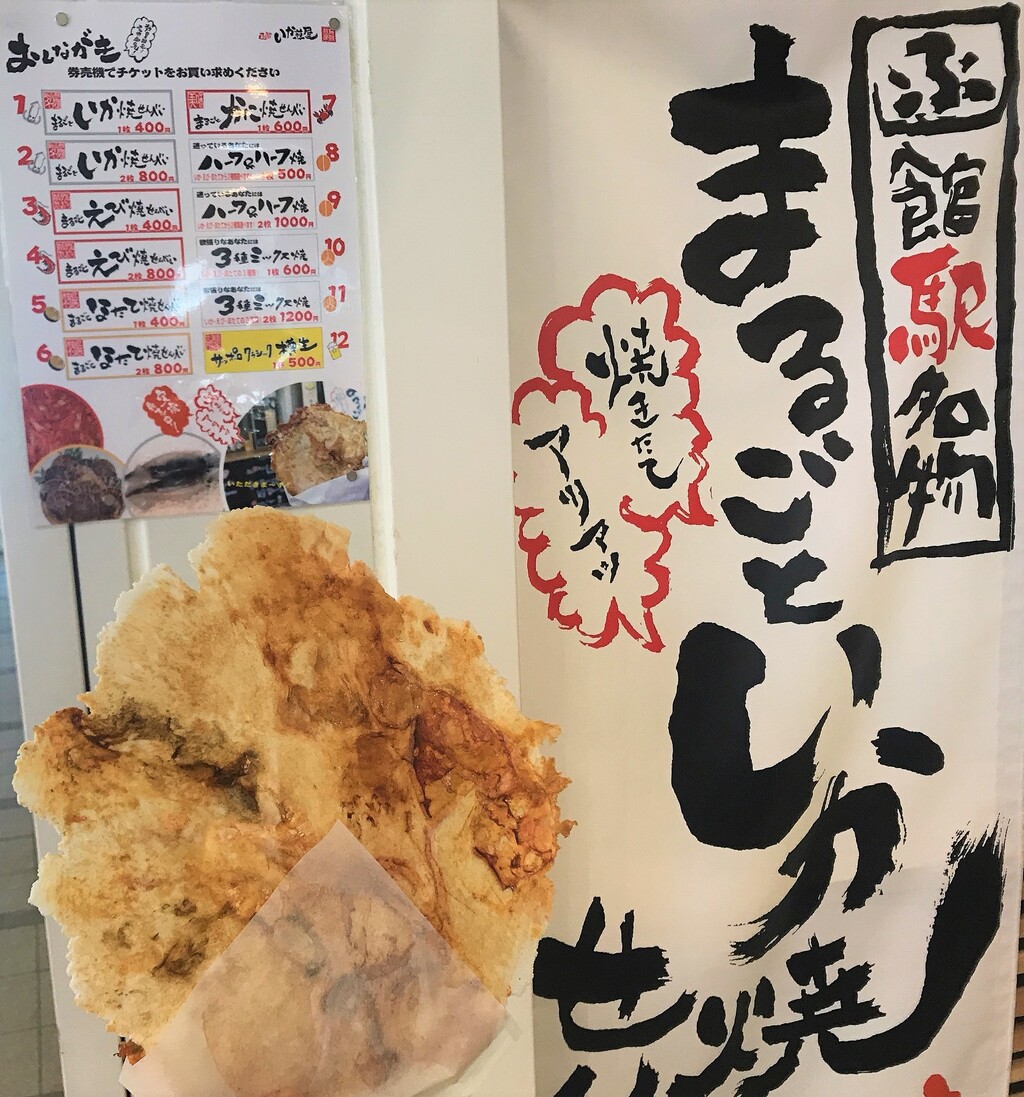 おしながき
いか煎屋
券売機でチケットをお買い求めください
1 まるごと いか焼せんべい
1枚 400円
2 まるごと いか焼せんべい
2枚 800円
3 まるごと えび焼せんべい
1枚 400円
4 まるごと えび焼せんべい
2枚 800円
5 まるごと ほたて焼せんべい
1枚 400円
6 まるごと ほたて焼せんべい
2枚 800円
7 まるごと かに焼せんべい
1枚 600円
8 迷っているあなたには
ハーフ&ハーフ焼
1枚 500円
9 迷っているあなたには
ハーフ&ハーフ焼
2枚 1000円
10 欲張りなあなたには
3種ミックス焼
1枚 600円
11 欲張りなあなたには
3種ミックス焼
2枚 1200円
12 サッポロクラシック 樽生
500円
いただきま〜す
函館駅名物
まるごといか焼
せ
焼きたて
アツアツ